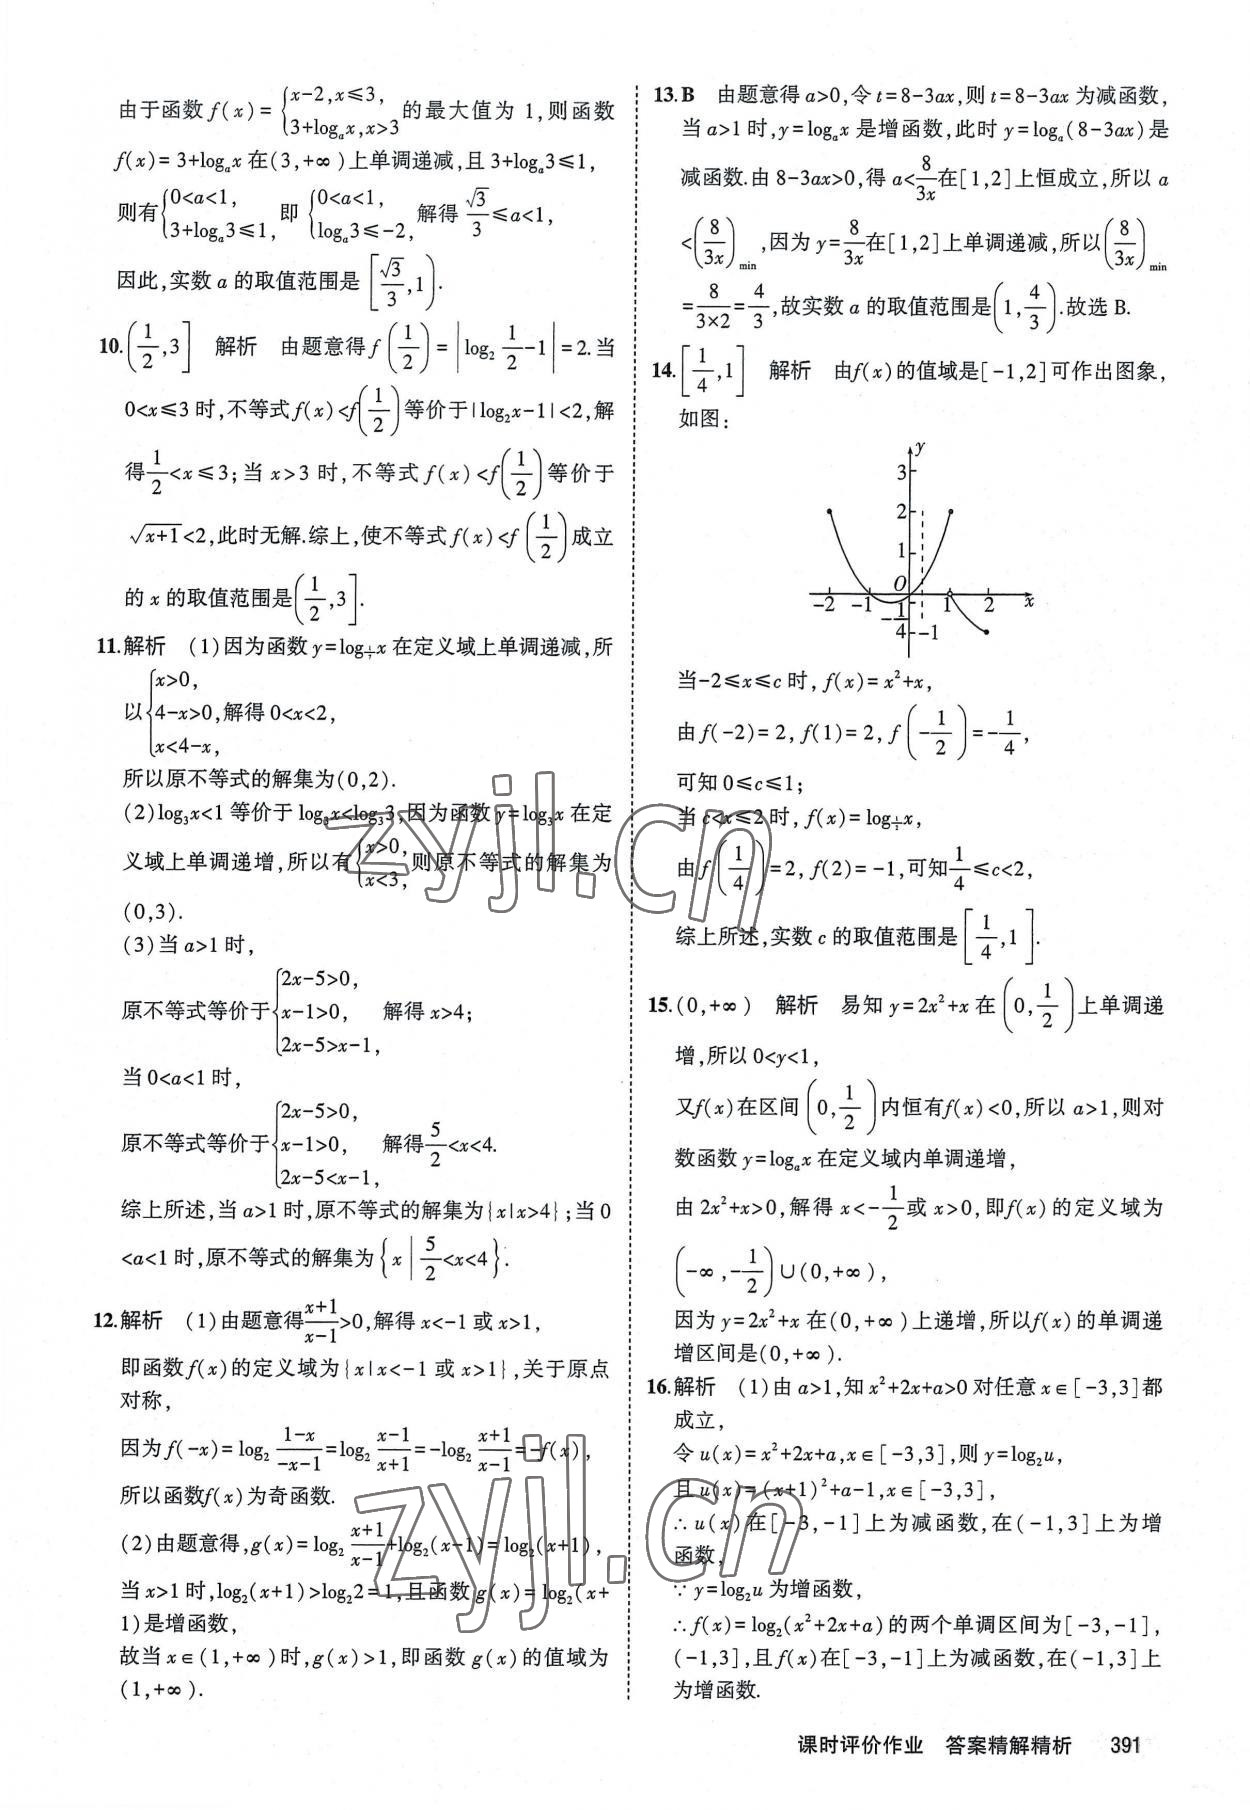 由于函数 f(x)={x-2,x≤3, 3+logₐx,x>3 的最大值为 1,则函数
f(x)=3+logₐx 在(3,+∞)上单调递减,且 3+logₐ3≤1,
则有{0<a<1, 3+logₐ3≤1, 即 {0<a<1, logₐ3≤-2, 解得 √3/3≤a<1,
因此,实数 a 的取值范围是 [√3/3,1).
10.(1/2,3] 解析 由题意得 f(1/2)=|log₂ 1/2-1|=2.当
0<x≤3 时,不等式 f(x)<f(1/2)等价于|log₂x-1|<2,解
得1/2<x≤3;当 x>3 时,不等式 f(x)<f(1/2)等价于
√(x+1)<2,此时无解.综上,使不等式 f(x)<f(1/2)成立
的 x 的取值范围是(1/2,3].
11.解析 (1)因为函数 y=log_{1/7}x 在定义域上单调递减,所
以{x>0, 4-x>0, x<4-x, 解得 0<x<2,
所以原不等式的解集为(0,2).
(2)log₃x<1 等价于 log₃x<log₃3,因为函数 y=log₃x 在定
义域上单调递增,所以有{x>0, x<3, 则原不等式的解集为
(0,3).
(3)当 a>1 时,
原不等式等价于{2x-5>0, x-1>0, 2x-5>x-1, 解得 x>4;
当 0<a<1 时,
原不等式等价于{2x-5>0, x-1>0, 2x-5<x-1, 解得5/2<x<4.
综上所述,当 a>1 时,原不等式的解集为{x|x>4};当 0
<a<1 时,原不等式的解集为{x|5/2<x<4}.
12.解析 (1)由题意得(x+1)/(x-1)>0,解得 x<-1 或 x>1,
即函数 f(x)的定义域为{x|x<-1 或 x>1},关于原点
对称,
因为 f(-x)=log₂ (1-x)/(-x-1)=log₂ (x-1)/(x+1)=-log₂ (x+1)/(x-1)=-f(x),
所以函数f(x)为奇函数.
(2)由题意得,g(x)=log₂ (x+1)/(x-1)+log₂(x-1)=log₂(x+1),
当 x>1 时,log₂(x+1)>log₂2=1,且函数 g(x)=log₂(x+
1)是增函数,
故当 x∈(1,+∞)时,g(x)>1,即函数 g(x)的值域为
(1,+∞).
13.B 由题意得 a>0,令 t=8-3ax,则 t=8-3ax 为减函数,
当 a>1 时,y=logₐx 是增函数,此时 y=logₐ(8-3ax)是
减函数.由 8-3ax>0,得 a<8/3x在[1,2]上恒成立,所以 a
<(8/3x)min,因为 y=8/3x在[1,2]上单调递减,所以(8/3x)min
=8/(3×2)=4/3,故实数 a 的取值范围是(1,4/3).故选 B.
14.[1/4,1] 解析 由f(x)的值域是[-1,2]可作出图象,
如图:
y
3
2
1
O
-2 -1 1 2 x
-1/4
-1
当-2≤x≤c 时,f(x)=x²+x,
由 f(-2)=2,f(1)=2,f(-1/2)=-1/4,
可知 0≤c≤1;
当 c<x≤2 时,f(x)=log_{1/2}x,
由 f(1/4)=2,f(2)=-1,可知1/4≤c<2,
综上所述,实数 c 的取值范围是[1/4,1].
15.(0,+∞) 解析 易知 y=2x²+x 在(0,1/2)上单调递
增,所以 0<y<1,
又f(x)在区间(0,1/2)内恒有f(x)<0,所以 a>1,则对
数函数 y=logₐx 在定义域内单调递增,
由 2x²+x>0,解得 x<-1/2或 x>0,即f(x)的定义域为
(-∞,-1/2)∪(0,+∞),
因为 y=2x²+x 在(0,+∞)上递增,所以f(x)的单调递
增区间是(0,+∞).
16.解析 (1)由 a>1,知 x²+2x+a>0 对任意 x∈[-3,3]都
成立,
令 u(x)=x²+2x+a,x∈[-3,3],则 y=log₂u,
且 u(x)=(x+1)²+a-1,x∈[-3,3],
∴u(x)在[-3,-1]上为减函数,在(-1,3]上为增
函数,
∵y=log₂u 为增函数,
∴f(x)=log₂(x²+2x+a)的两个单调区间为[-3,-1],
(-1,3],且 f(x)在[-3,-1]上为减函数,在(-1,3]上
为增函数.
zyjl.cn
zyjl.cn
课时评价作业 答案精解精析 391